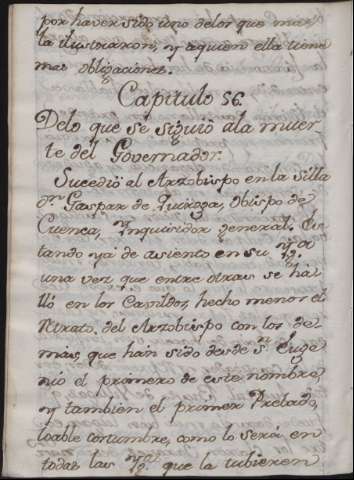 por haver sido uno delos que mas
la ilustraron, y aquien ella tiene
mas obligaciones.
Capitulo 56.
Delo que se siguió ala muer-
te del Governador.
Sucedió al Arzobispo en la silla
Dn. Gaspar de Quiroga, Obispo de
Cuenca, Ynquisidor general. Es-
tando ya de asiento en su Yga.
una vez que entre otras se ha-
lló en los Cavildos, hecho menos el
Retrato del Arzobispo con los de-
mas, que hán sido desde Sn. Euge-
nio el primero de este nombre,
y tambien el primer Prelado,
loable costumbre, como lo será en
todas las Ygs. que la tubieren